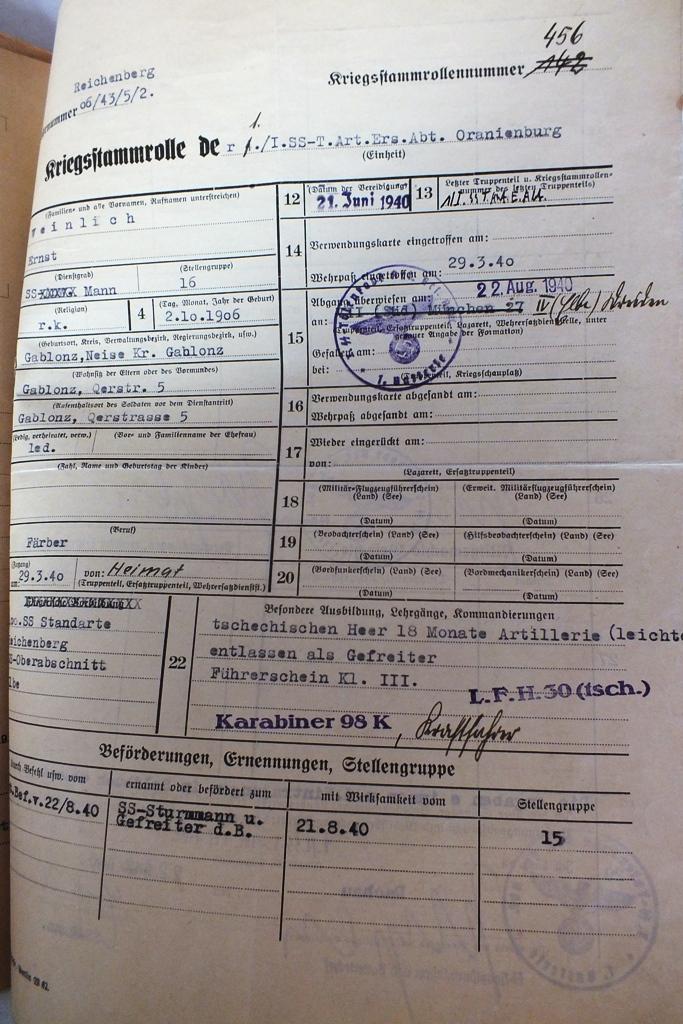 456
Reichenberg
Kriegsstammrollennummer 142
nummer 06/43/5/2.
1.
Kriegsstammrolle de r /I.SS-T.Art.Ers.Abt. Oranienburg
(Einheit)
(Familien- und alle Vornamen, Rufnamen unterstreichen)
Weinlich
Ernst
(Dienstgrad) (Stellengruppe)
SS- Mann 16
(Religion) 4 (Tag, Monat, Jahr der Geburt)
r.k. 2.10.1906
(Geburtsort, Kreis, Verwaltungsbezirk, Regierungsbezirk, usw.)
Gablonz,Neise Kr. Gablonz
(Wohnsitz der Eltern oder des Vormundes)
Gablonz, Qerstr. 5
(Aufenthaltsort des Soldaten vor dem Diensteintritt)
Gablonz, Qerstrasse 5
(ledig, verheiratet, verw.) (Vor- und Familienname der Ehefrau)
led.
(Zahl, Name und Geburtstag der Kinder)
(Beruf)
Färber
(Zugang)
am: 29.3.40 von: Heimat
(Truppenteil, Ersatztruppenteil, Wehrersatzdienstst.)
12 (Datum der Vereidigung)
21. Juni 1940
13 Letzter Truppenteil u. Kriegsstammrollen-
nummer des letzten Truppenteils)
14 Verwendungskarte eingetroffen am:
Wehrpaß eingetroffen am: 29.3.40
15 Abgang überwiesen am: 22. Aug. 1940
an: III (Süd) München 27 IV (Elbe) Dresden
Gefallen am:
bei:
16 Verwendungskarte abgesandt am:
Wehrpaß abgesandt am:
17 Wieder eingerückt am:
von:
(Lazarett, Ersatztruppenteil)
18 (Militär-Flugzeugführerschein) (Erweit. Militärflugzeugführerschein)
(Land) (See) (Land) (See)
(Datum) (Datum)
19 (Beobachterschein) (Land) (See) (Hilfsbeobachterschein) (Land) (See)
(Datum) (Datum)
20 (Bordfunkerschein) (Land) (See) (Bordmechanikerschein) (Land) (See)
(Datum) (Datum)
SS Standarte
eichenberg
-Oberabschnitt
lbe
22 Besondere Ausbildung, Lehrgänge, Kommandierungen
tschechischen Heer 18 Monate Artillerie (leichte
entlassen als Gefreiter
Führerschein Kl. III.
L.F.H.30 (tsch.)
Karabiner 98 K, Kraftfahrer
Beförderungen, Ernennungen, Stellengruppe
durch Befehl usw. vom ernannt oder befördert zum mit Wirksamkeit vom Stellengruppe
.Bef.v.22/8.40 SS-Sturmmann u. 21.8.40 15
Gefreiter d.B.